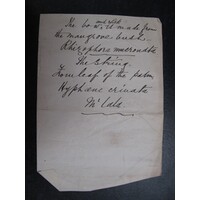 The bow and shaft is made from
the mangrove bush.
Rhizophora mucronata
The string.
From leaf of the palm
Hyphaene crinata
Mr Cole